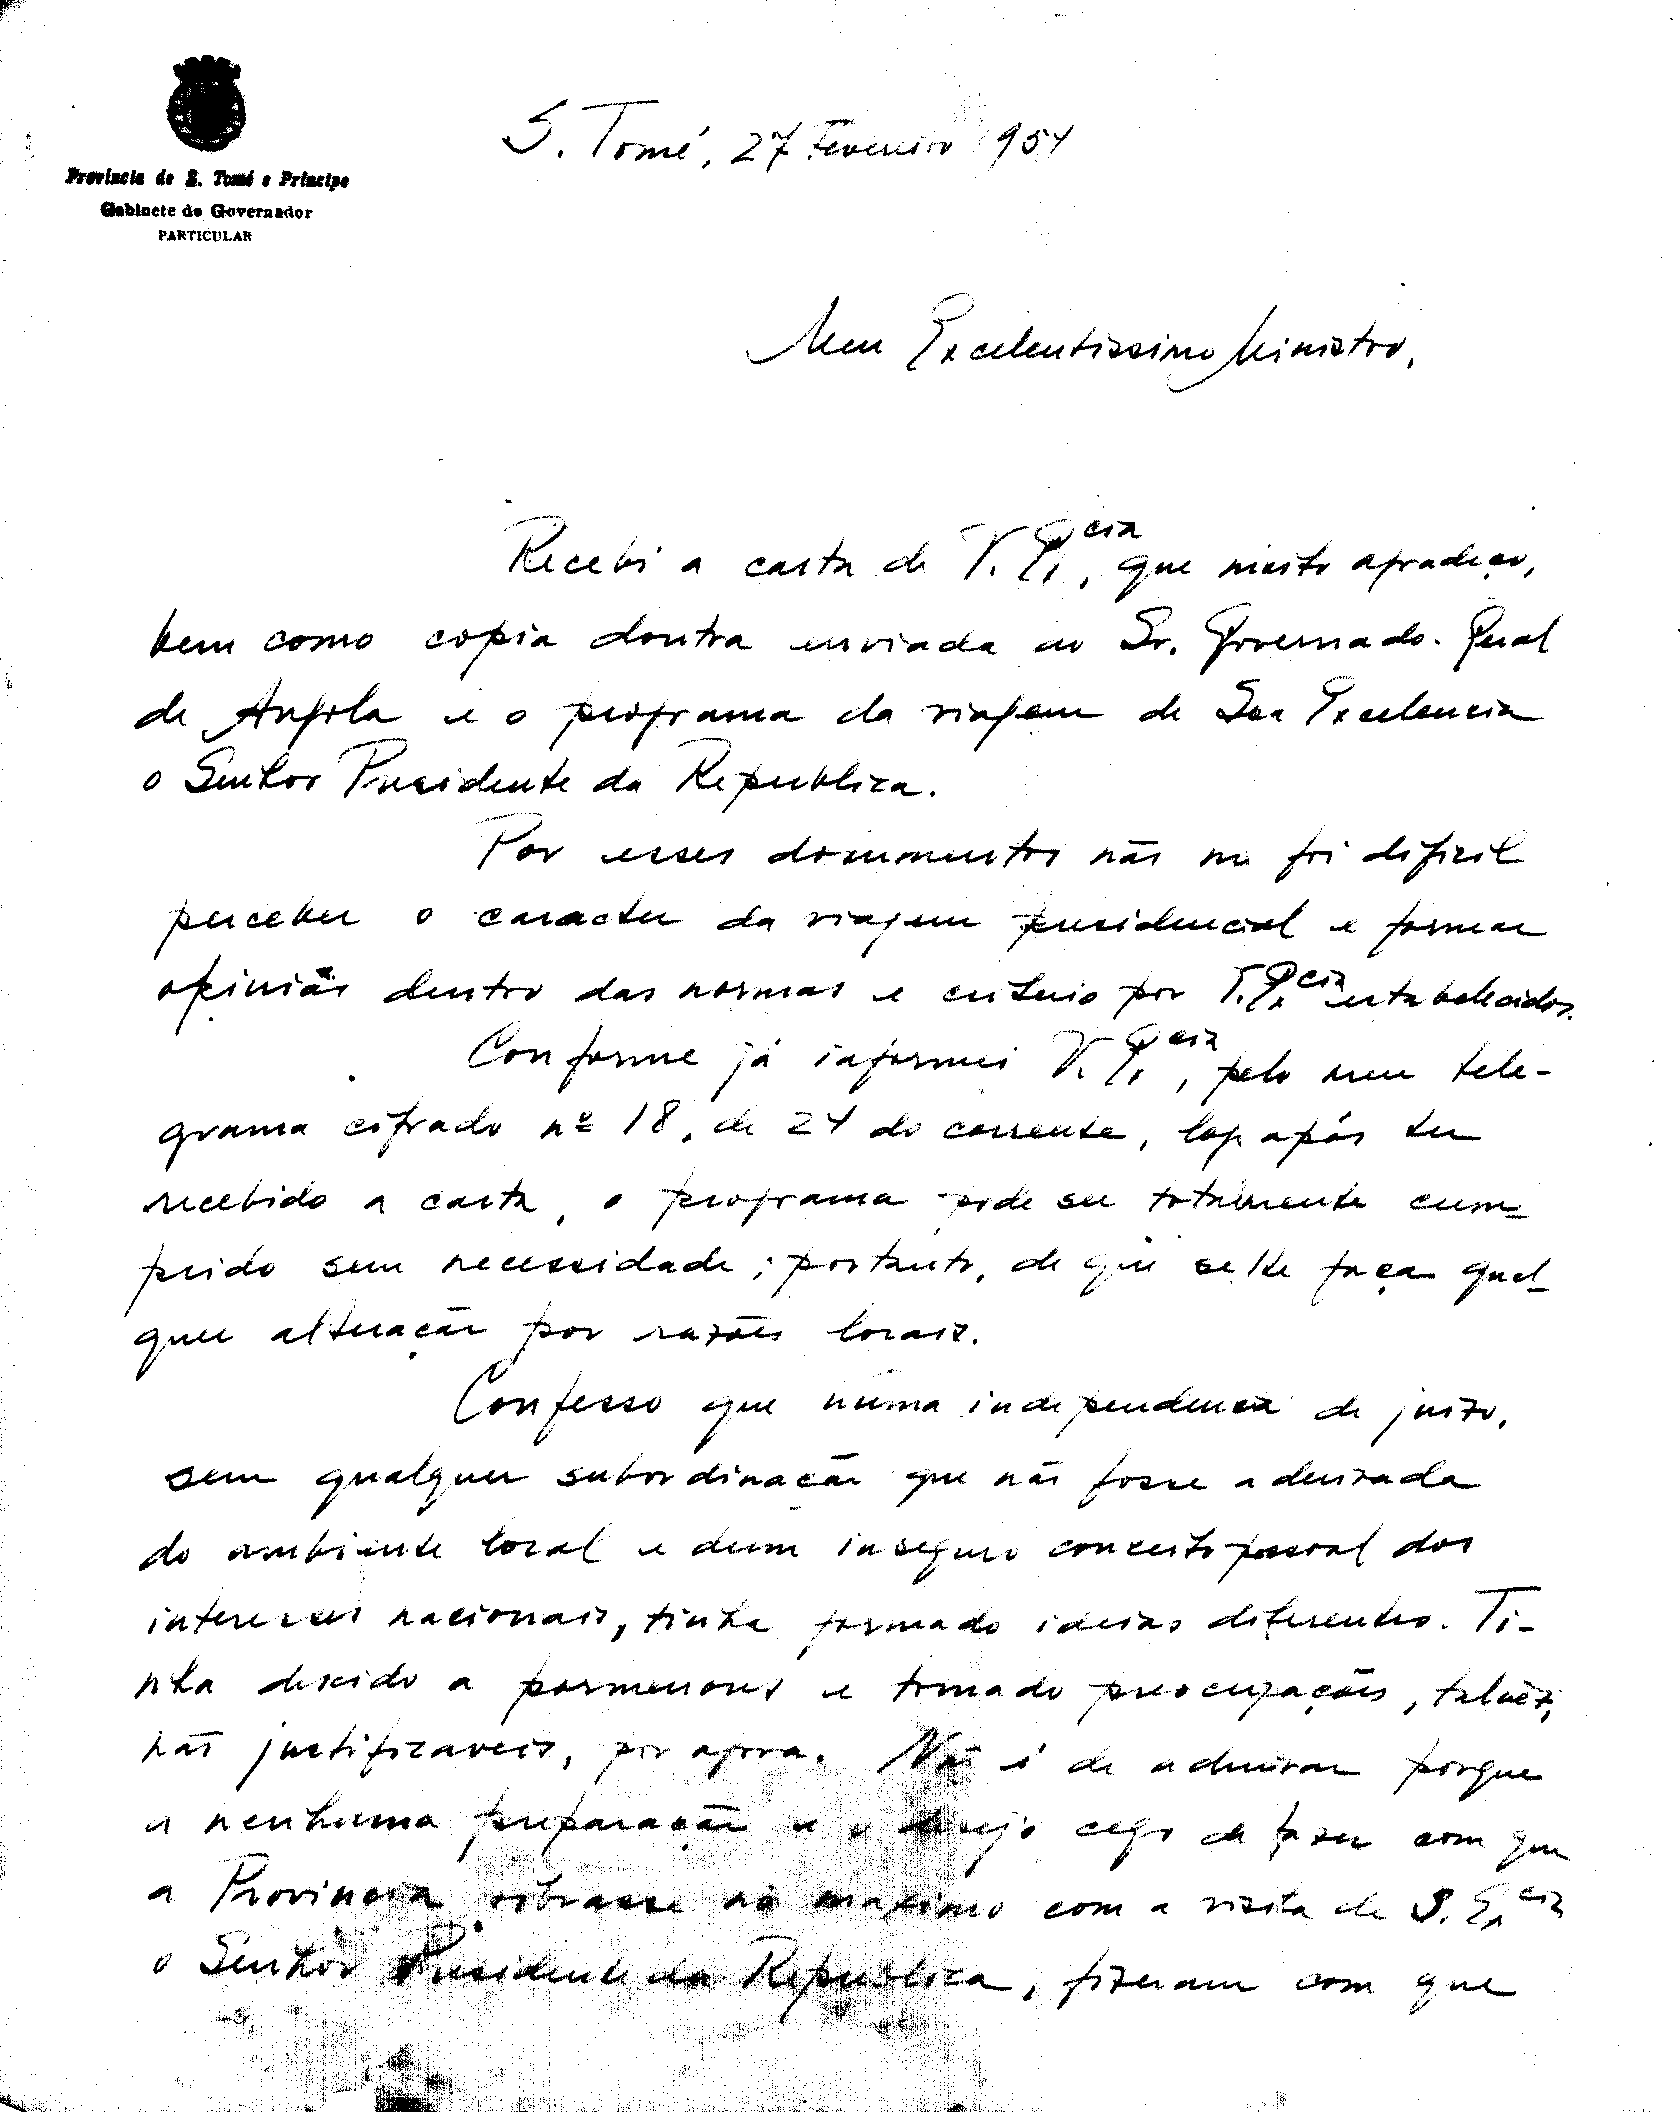 Provincia de S. Tomé e Principe
Gabinete do Governador
PARTICULAR
S. Tomé, 27 Fevereiro 1954
Meu Excelentissimo Ministro,
Recebi a carta de V. Ex.cia, que muito agradeço,
bem como copia doutra enviada ao Sr. Governador Geral
de Angola e o programa da viagem de Sua Excelencia
o Senhor Presidente da Republica.
Por esses documentos não me foi dificil
perceber o caracter da viagem presidencial e formar
opinião dentro das normas e criterio por V. Ex.cia estabelecidos.
Conforme já informei V. Ex.cia, pelo meu tele-
grama cifrado nº 18, de 24 do corrente, logo após ter
recebido a carta, o programa pode ser totalmente cum-
prido sem necessidade, portanto, de que se lhe faça qual-
quer alteração por razões locais.
Confesso que numa independencia de juizo,
sem qualquer subordinação que não fosse a derivada
do ambiente local e dum inseguro conceito pessoal dos
interesses nacionais, tinha formado ideias diferentes. Ti-
nha descido a pormenores e tomado preocupações, talvez,
não justificaveis, por agora. Não é de admirar porque
a nenhuma preparação e o desejo cego de fazer com que
a Provincia vibrasse ao maximo com a visita de S. Ex.cia
o Senhor Presidente da Republica, fizeram com que